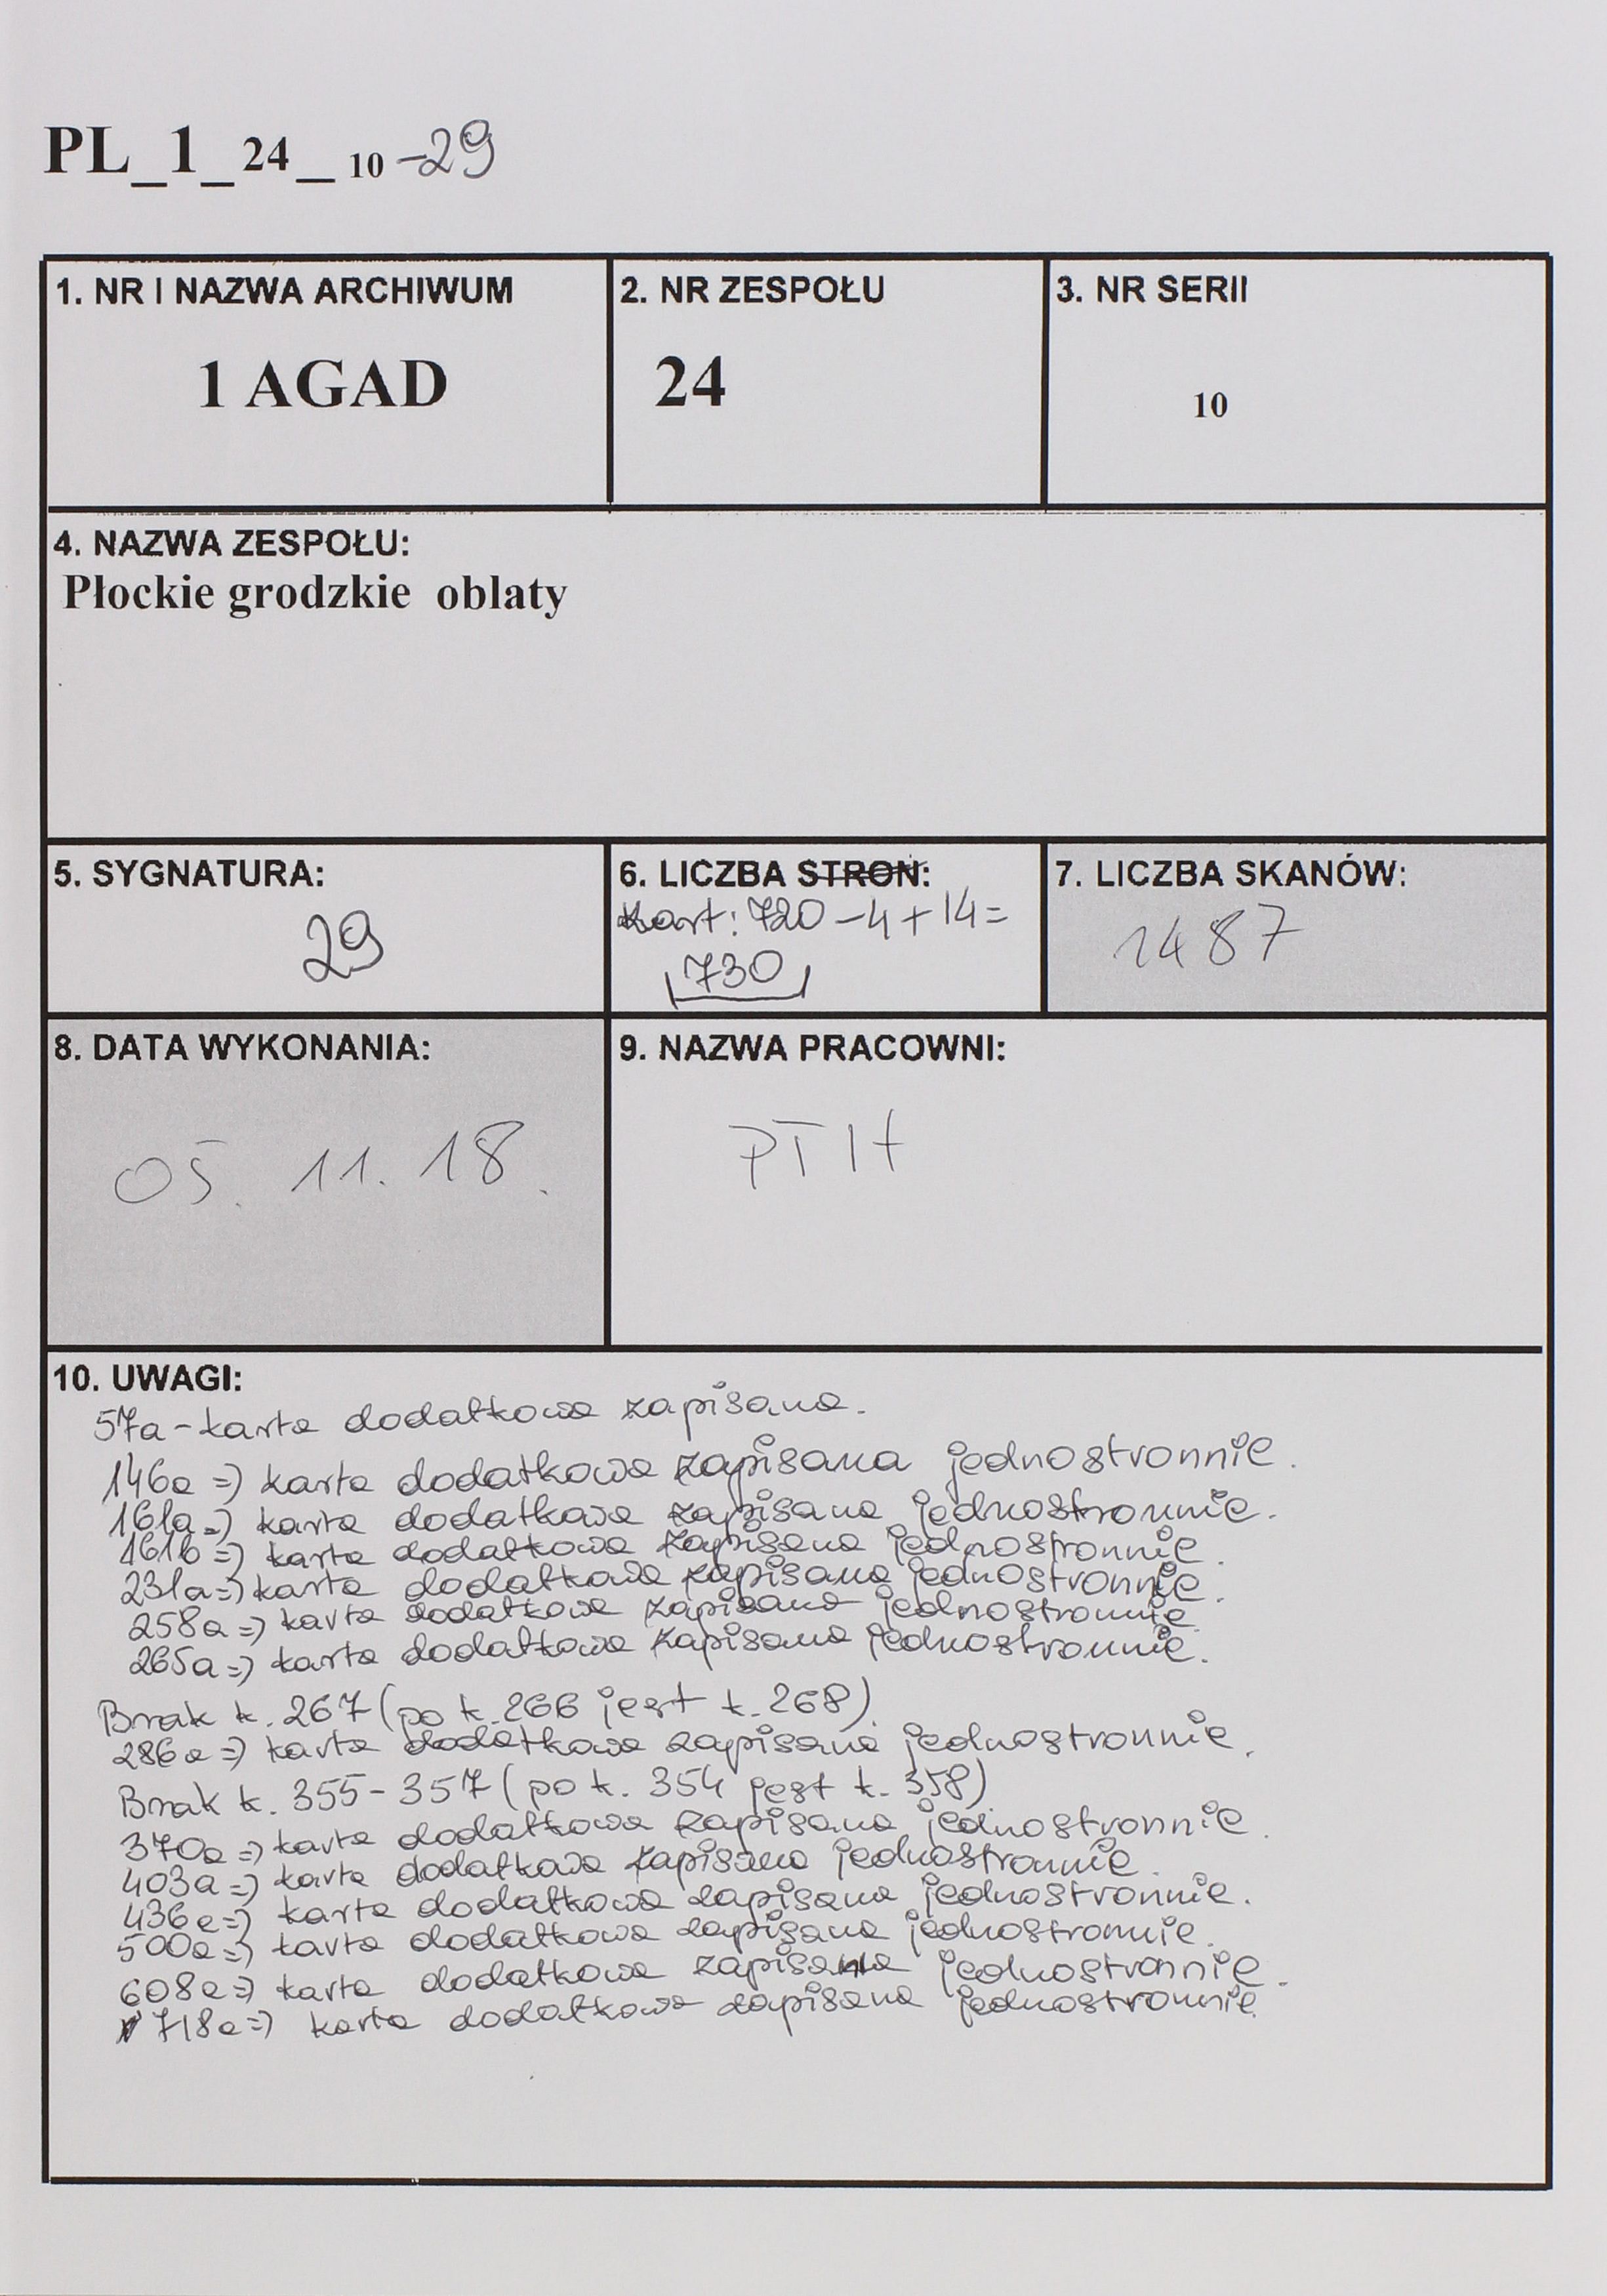 PL_1_24_10-29
1. NR I NAZWA ARCHIWUM
1 AGAD
2. NR ZESPOŁU
24
3. NR SERII
10
4. NAZWA ZESPOŁU:
Płockie grodzkie oblaty
5. SYGNATURA:
29
6. LICZBA STRON:
kart: 720-4+14=
730
7. LICZBA SKANÓW:
1487
8. DATA WYKONANIA:
05. 11. 18.
9. NAZWA PRACOWNI:
PTIH
10. UWAGI:
57a - karta dodatkowa zapisana.
146a => karta dodatkowa zapisana jednostronnie.
161a => karta dodatkowa zapisana jednostronnie.
161b => karta dodatkowa zapisana jednostronnie.
231a => karta dodatkowa zapisana jednostronnie.
258a => karta dodatkowa zapisana jednostronnie.
265a => karta dodatkowa zapisana jednostronnie.
Brak k. 267 (po k. 266 jest k. 268)
286a => karta dodatkowa zapisana jednostronnie.
Brak k. 355-357 (po k. 354 jest k. 358)
370a => karta dodatkowa zapisana jednostronnie.
403a => karta dodatkowa zapisana jednostronnie.
436a => karta dodatkowa zapisana jednostronnie.
500a => karta dodatkowa zapisana jednostronnie.
608a => karta dodatkowa zapisana jednostronnie.
718a => karta dodatkowa zapisana jednostronnie